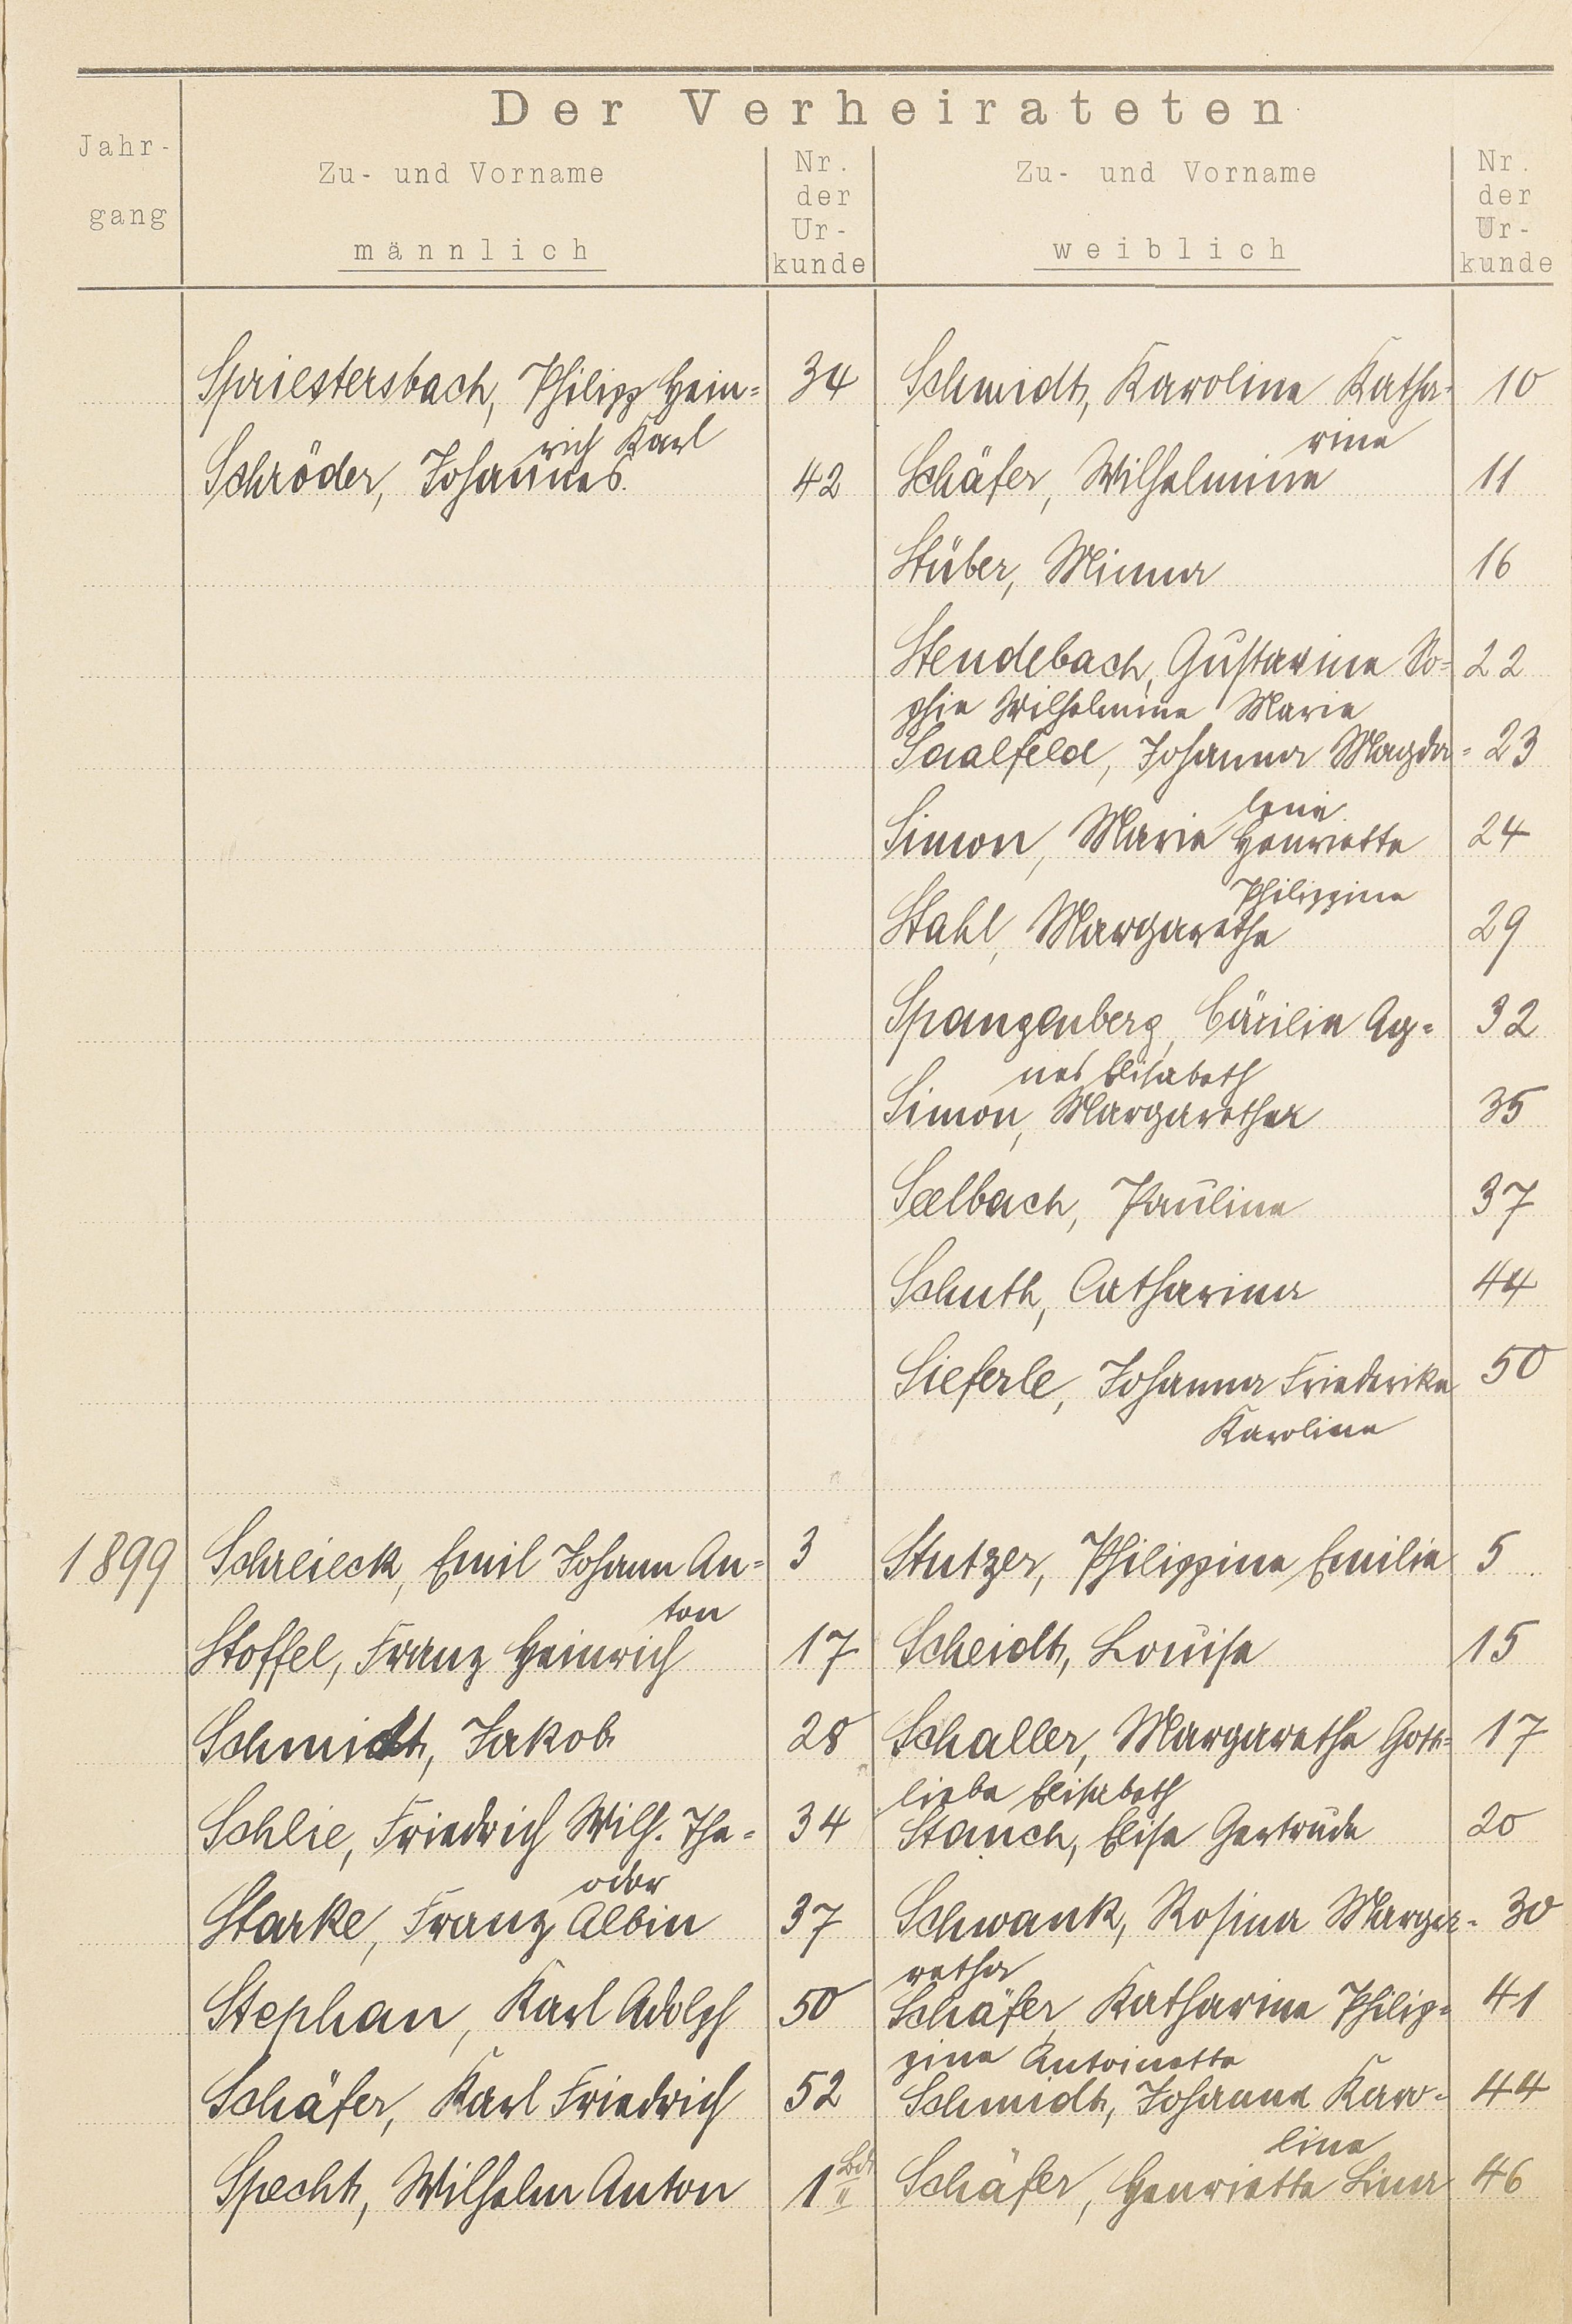 Der Verheirateten
Jahr-
gang
Zu- und Vorname
männlich
Nr.
der
Ur-
kunde
Zu- und Vorname
weiblich
Nr.
der
Ur-
kunde
Spriestersbach, Philipp Hein= 34 Schmidt, Karoline Katha- 10
rich Karl rine
Schröder, Johannes. 42 Schäfer, Wilhelmine 11
Stüber, Minna 16
Stendebach, Gustavine So= 22
phie Wilhelmine Marie
Saalfeld, Johanna Magda= 23
lene
Simon, Marie Henriette 24
Philippine
Stahl, Margarethe 29
Spangenberg, Cäcilie Ag= 32
nes Elisabeth
Simon, Margaretha 35
Seelbach, Pauline 37
Schuth, Catharina 44
Sieferle, Johanna Friederike 50
Karoline
1899 Schreieck, Emil Johann An= 3 Stutzer, Philippine Emilie 5
ton
Stoffel, Franz Heinrich 17 Scheidt, Louise 15
Schmidt, Jakob 28 Schaller, Margarethe Gott= 17
liebe Elisabeth
Schlie, Friedrich Wilh. The= 34 Stauch, Elise Gertrude 20
odor
Starke, Franz Albin 37 Schwank, Rosina Marga= 30
retha
Stephan, Karl Adolph 50 Schäfer, Katharine Philip= 41
pine Antoinette
Schäfer, Karl Friedrich 52 Schmidt, Johanna Karo= 44
line
Specht, Wilhelm Anton 1 Bd. II Schäfer, Henriette Lina 46